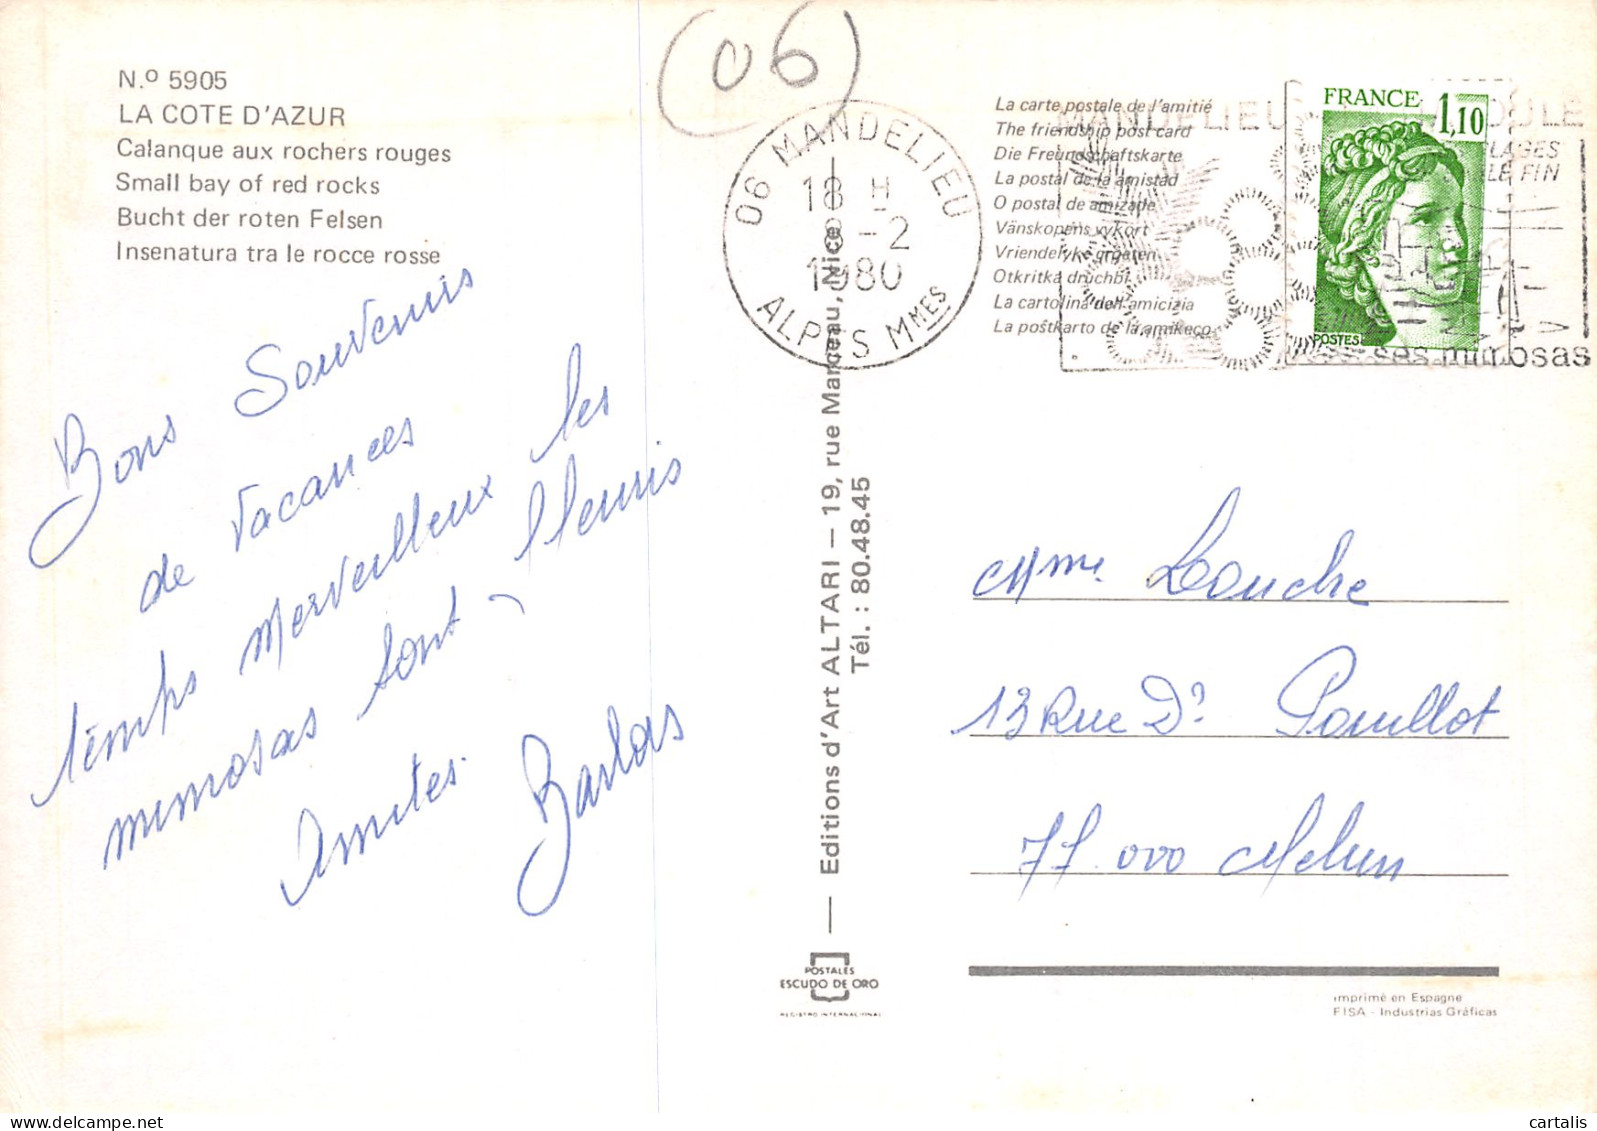 (06)
N.º 5905
LA COTE D'AZUR
Calanque aux rochers rouges
Small bay of red rocks
Bucht der roten Felsen
Insenatura tra le rocce rosse
Bons Souvenirs
de Vacances
temps merveilleux les
mimosas sont fleuris
Amitiés.
06 MANDELIEU
18 H
8-2
1980
ALPES MMES
La carte postale de l'amitié
The friendship post card
Die Freundschaftskarte
La postal de la amistad
O postal de amizade
Vänskopens vykort
Vriendelyke groeten
Otkritka druchbi
La cartolina dell'amicizia
La poŝtkarto de la amikeco
MANDELIEU
ses mimosas
FRANCE 1,10
POSTES
Editions d'Art ALTARI — 19, rue Marceau, Nice
Tél. : 80.48.45
Mme Louche
13 Rue Dr Pouillot
77.000 Melun
POSTALES
ESCUDO DE ORO
REGISTRO INTERNACIONAL
imprimé en Espagne
FISA - Industrias Gráficas
cartalis